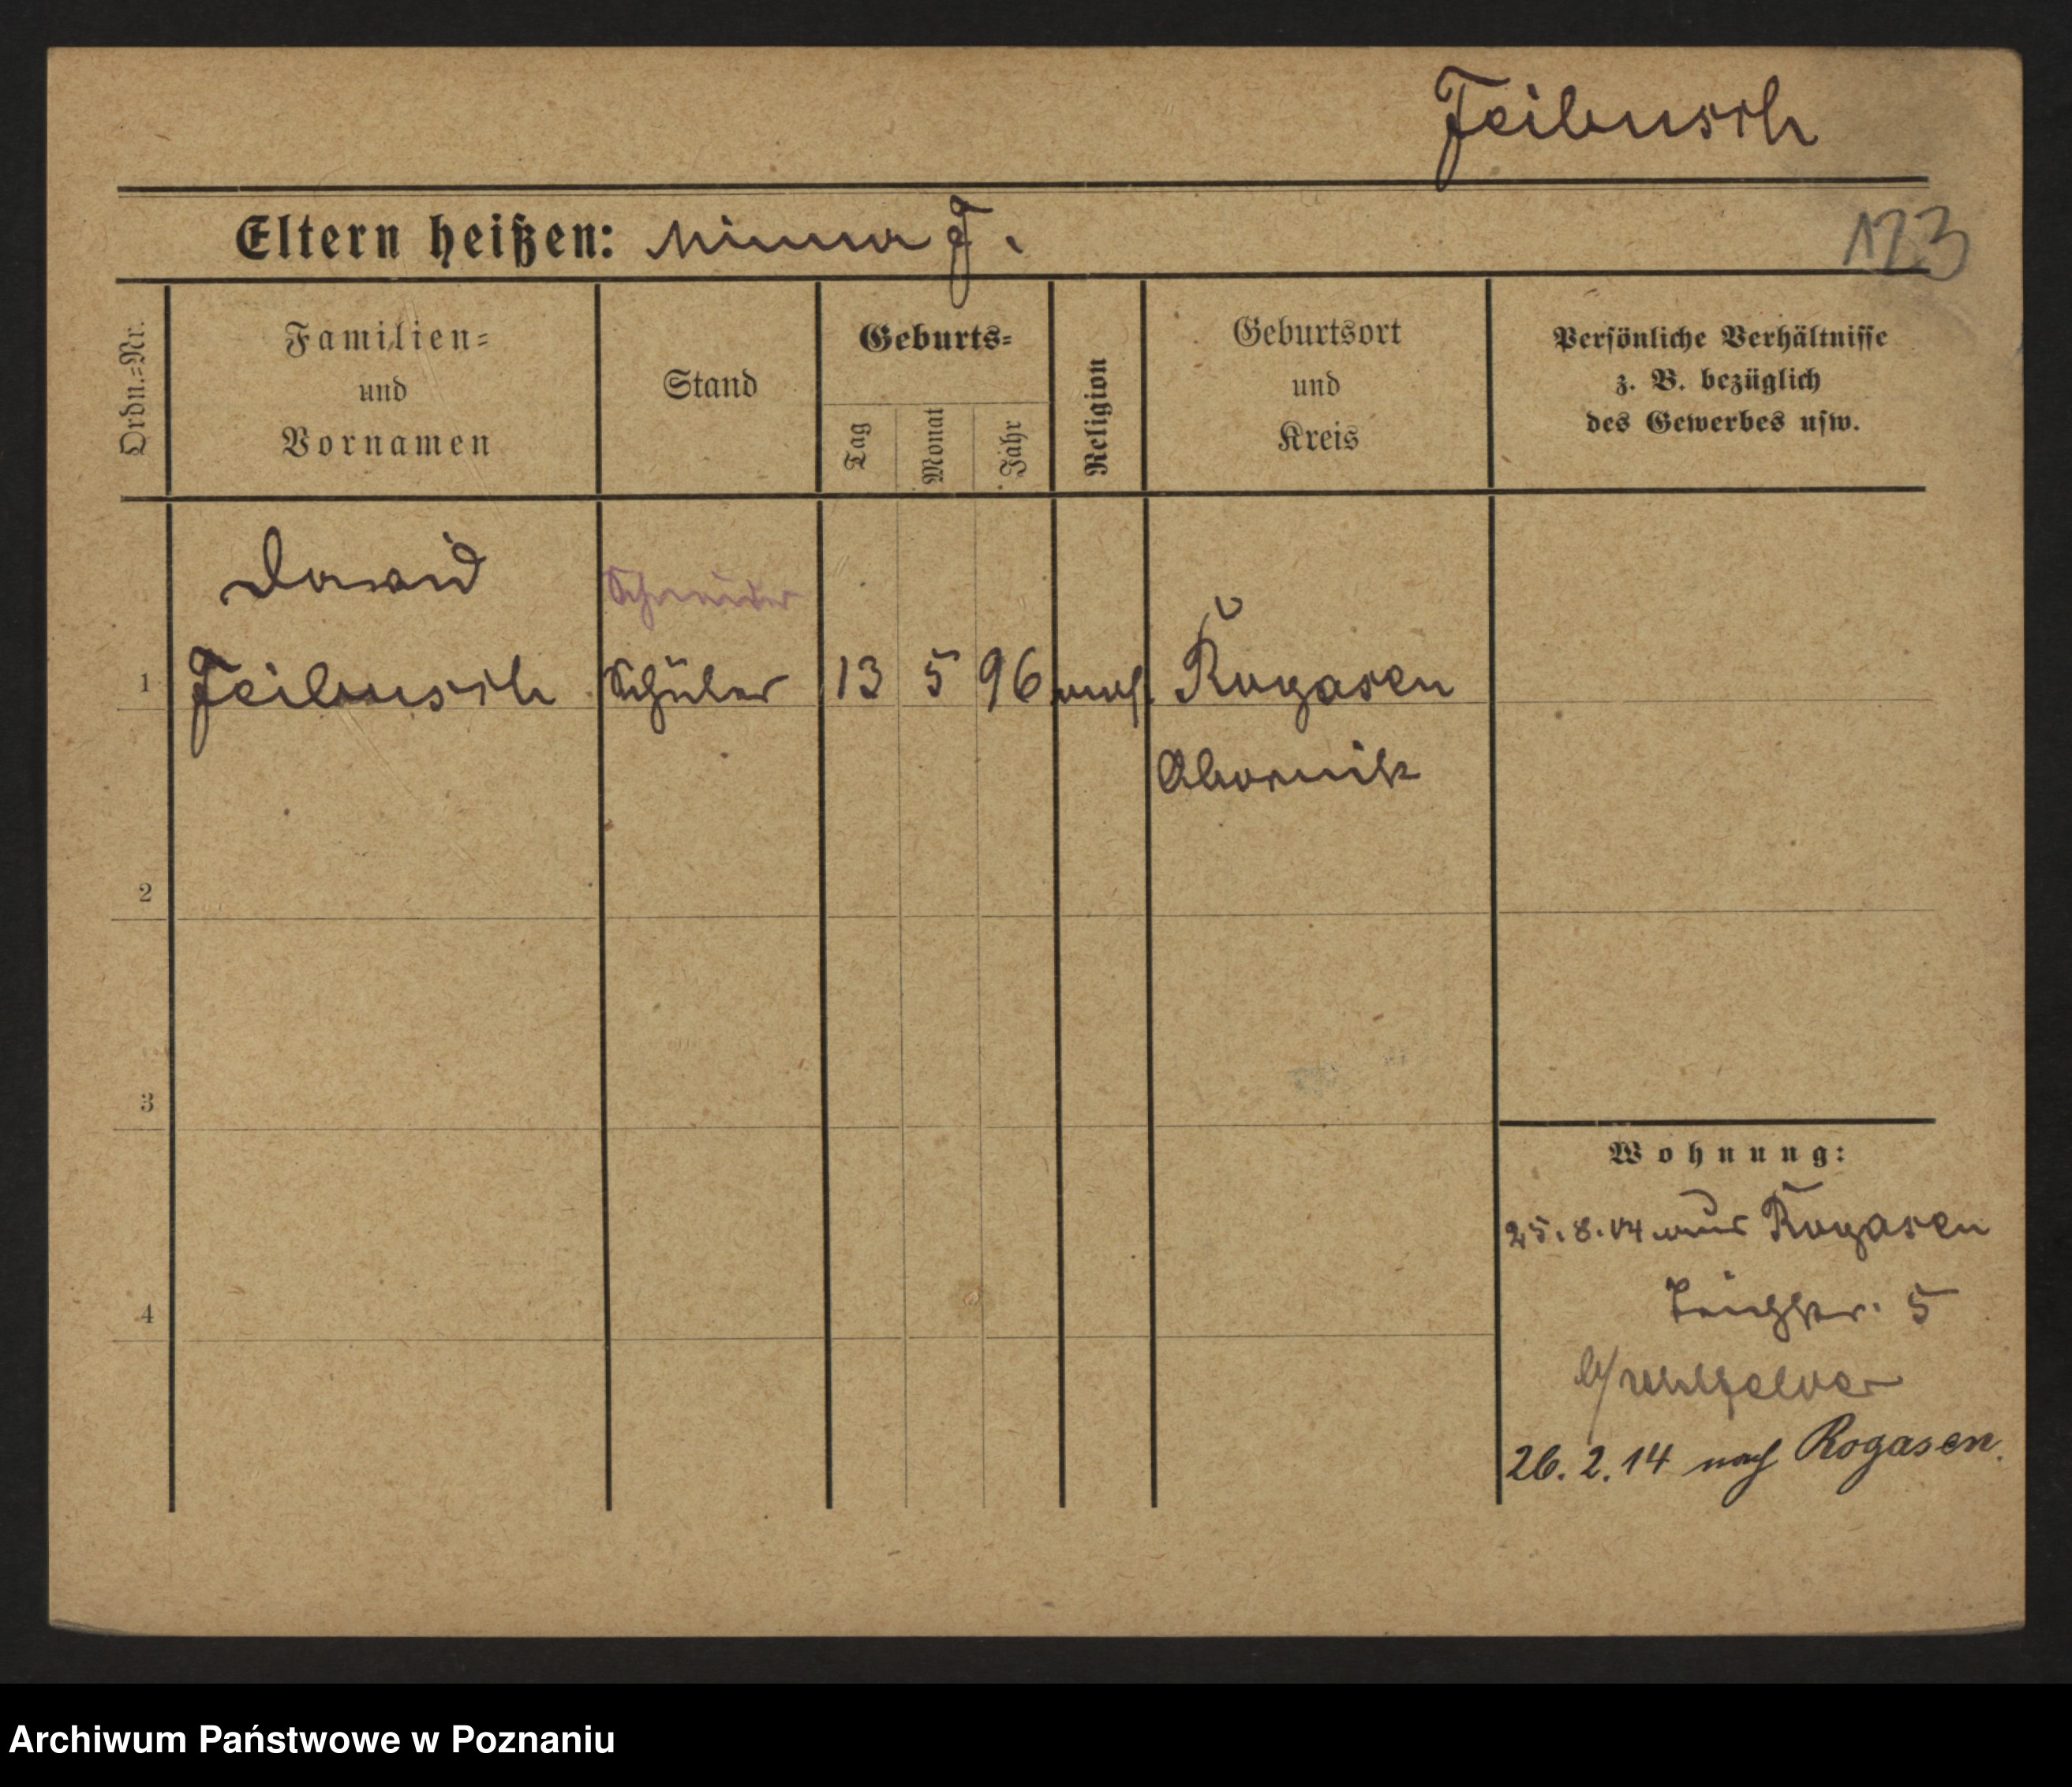 Feibusch
Eltern heißen: Minna F.
123
Ordn.=Nr.
Familien=
und
Vornamen
Stand
Geburts=
Tag
Monat
Jahr
Religion
Geburtsort
und
Kreis
Persönliche Verhältnisse
z. B. bezüglich
des Gewerbes usw.
David
Schneider
1 Feibusch Schüler 13 5 96 mos. Rogasen
Obornik
2
3
4
Wohnung:
25.8.04 aus Rogasen
5
b/
26.2.14 nach Rogasen.
Archiwum Państwowe w Poznaniu